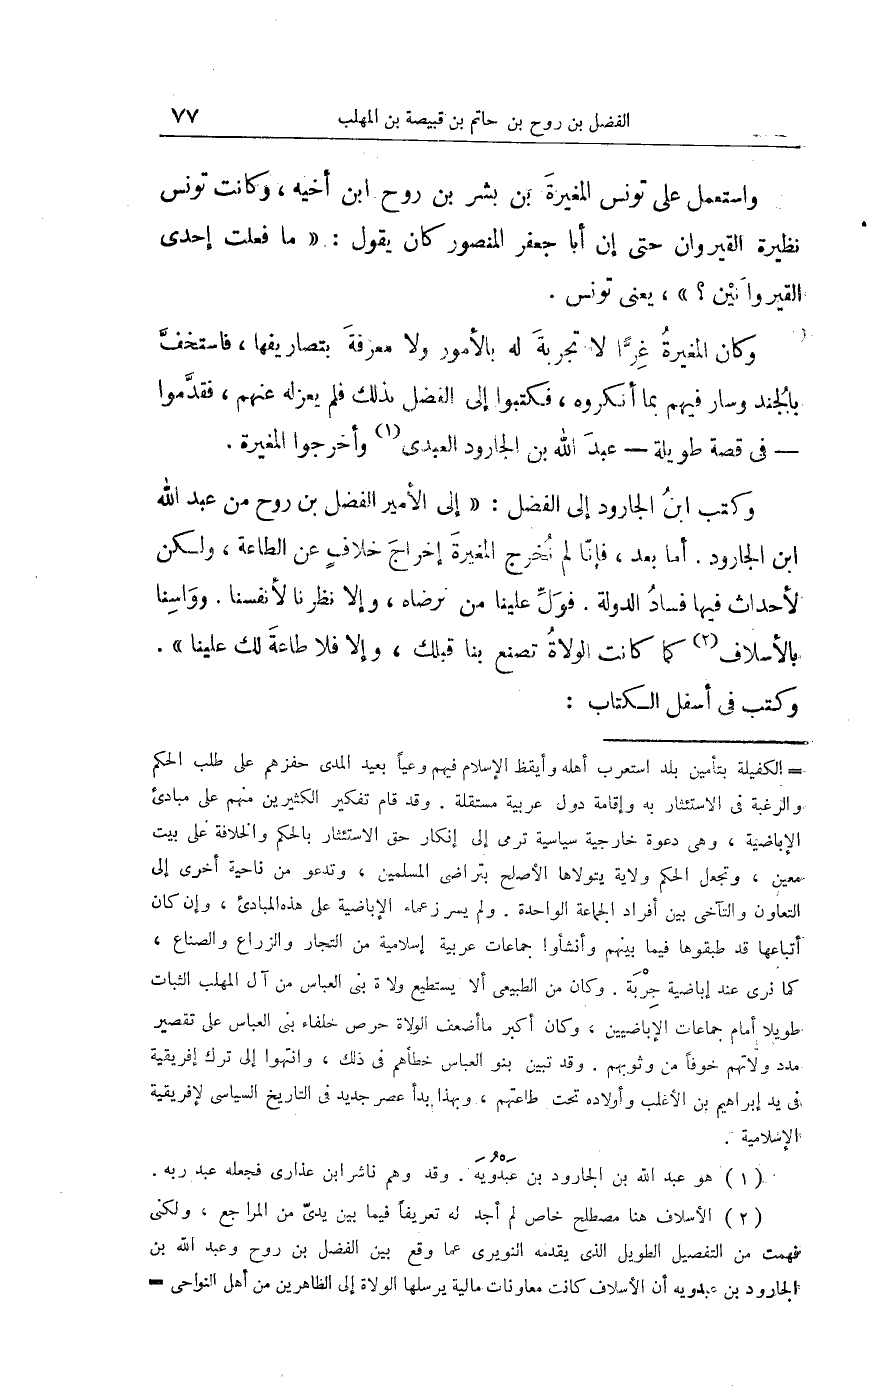 الفضل بن روح بن حاتم بن قبيصة بن المهلب ٧٧
واستعمل على تونس المغيرةَ بن بشر بن روح ابن أخيه ، وكانت تونس
نظيرة القيروان حتى إن أبا جعفر المنصور كان يقول : « ما فعلت إحدى
القيروانَيْن ؟ » ، يعنى تونس .
وكان المغيرةُ غِرًّا لا تجربةَ له بالأمور ولا معرفةَ بتصاريفها ، فاستخفَّ
بالجُند وسار فيهم بما أنكروه ، فكتبوا إلى الفضل بذلك فلم يعزله عنهم ، فقدَّموا
— فى قصة طويلة — عبدَ الله بن الجارود العبدى (١) وأخرجوا المغيرة .
وكتب ابنُ الجارود إلى الفضل : « إلى الأمير الفضل بن روح من عبد الله
ابن الجارود . أما بعد ، فإنّا لم نُخرج المغيرةَ إخراجَ خلافٍ عن الطاعة ، ولكن
لأحداث فيها فسادُ الدولة . فولِّ علينا من نرضاه ، وإلا نظرنا لأنفسنا . ووَاسِنا
بالأسلاف (٢) كما كانت الولاةُ تصنع بنا قبلك ، وإلا فلا طاعةَ لك علينا » .
وكتب فى أسفل الكتاب :
= الكفيلة بتأمين بلد استعرب أهله وأيقظ الإسلام فيهم وعياً بعيد المدى حفزهم على طلب الحكم
والرغبة فى الاستئثار به وإقامة دول عربية مستقلة . وقد قام تفكير الكثيرين منهم على مبادئ
الإباضية ، وهى دعوة خارجية سياسية ترمى إلى إنكار حق الاستئثار بالحكم والخلافة على بيت
معين ، وتجعل الحكم ولاية يتولاها الأصلح بتراضى المسلمين ، وتدعو من ناحية أخرى إلى
التعاون والتآخى بين أفراد الجماعة الواحدة . ولم يسر زعماء الإباضية على هذه المبادئ ، وإن كان
أتباعها قد طبقوها فيما بينهم وأنشأوا جماعات عربية إسلامية من التجار والزراع والصناع ،
كما نرى عند إباضية جِرْبَة . وكان من الطبيعى ألا يستطيع ولاة بنى العباس من آل المهلب الثبات
طويلا أمام جماعات الإباضيين ، وكان أكبر ماأضعف الولاة حرص خلفاء بنى العباس على تقصير
مدد ولاتهم خوفاً من وثوبهم . وقد تبين بنو العباس خطأهم فى ذلك ، وانتهوا إلى ترك إفريقية
فى يد إبراهيم بن الأغلب وأولاده تحت طاعتهم ، وبهذا بدأ عصر جديد فى التاريخ السياسى لإفريقية
الإسلامية .
(١) هو عبد الله بن الجارود بن عَبْدُويَهْ . وقد وهم ناشر ابن عذارى فجعله عبد ربه .
(٢) الأسلاف هنا مصطلح خاص لم أجد له تعريفاً فيما بين يدىّ من المراجع ، ولكنى
فهمت من التفصيل الطويل الذى يقدمه النويرى عما وقع بين الفضل بن روح وعبد الله بن
الجارود بن عبدويه أن الأسلاف كانت معاونات مالية يرسلها الولاة إلى الظاهرين من أهل النواحى =